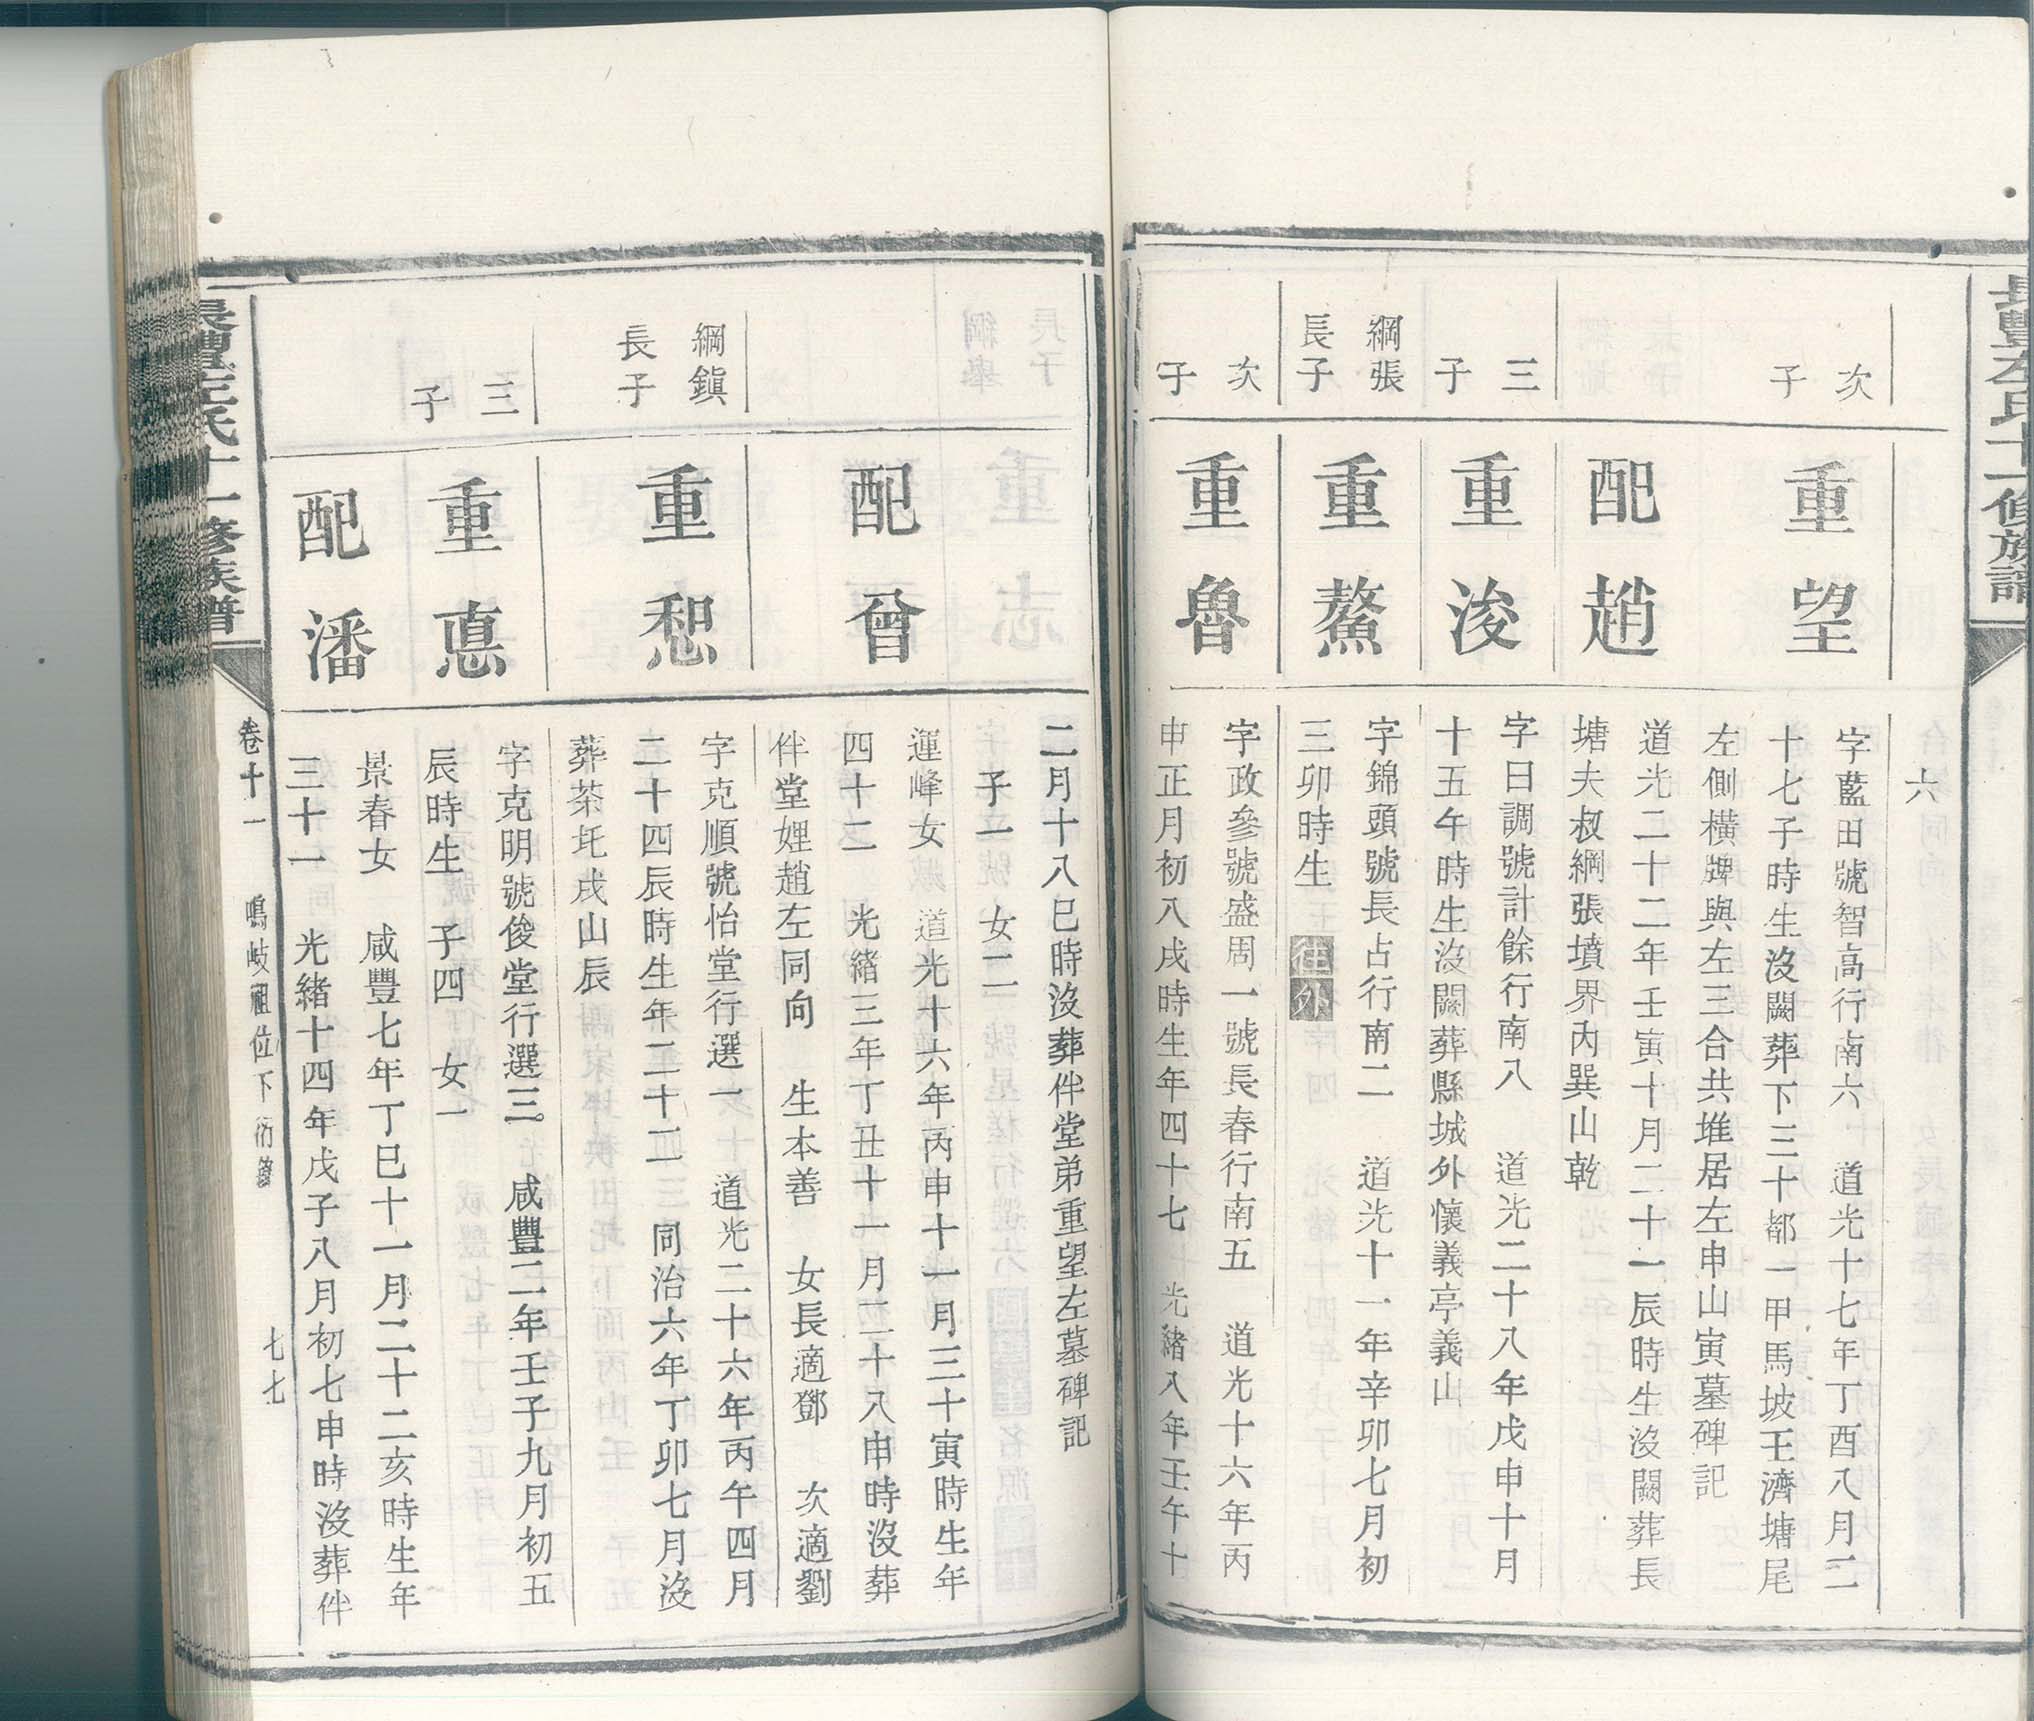 長豐左氏十一修族譜
六
次子
重望
字藍田號智高行南六　道光十七年丁酉八月二
十七子時生沒闕葬下三十都一甲馬坡王濟塘尾
左側橫牌與左三合共堆居左申山寅墓碑記
配趙
道光二十二年壬寅十月二十一辰時生沒闕葬長
塘夫叔綱張墳界內巽山乾
三子
重浚
字日調號計餘行南八　道光二十八年戊申十月
十五午時生沒闕葬縣城外懷義亭義山
綱張長子
重鰲
字錦頭號長占行南二　道光十一年辛卯七月初
三卯時生　往外
次子
重魯
字政參號盛周一號長春行南五　道光十六年丙
申正月初八戌時生年四十七　光緒八年壬午十
二月十八巳時沒葬伴堂弟重望左墓碑記
子一　女二
配曾
運峰女　道光十六年丙申十一月三十寅時生年
四十二　光緒三年丁丑十一月二十八申時沒葬
伴堂娌趙左同向　生本善　女長適鄧　次適劉
綱鎭長子
重恕
字克順號怡堂行選一　道光二十六年丙午四月
二十四辰時生年二十二　同治六年丁卯七月沒
葬茶圫戌山辰
三子
重悳
字克明號俊堂行選三　咸豐二年壬子九月初五
辰時生　子四　女一
配潘
景春女　咸豐七年丁巳十一月二十二亥時生年
三十一　光緒十四年戊子八月初七申時沒葬伴
長豐左氏十一修族譜
卷十一　鳴岐祖位下衍
七七